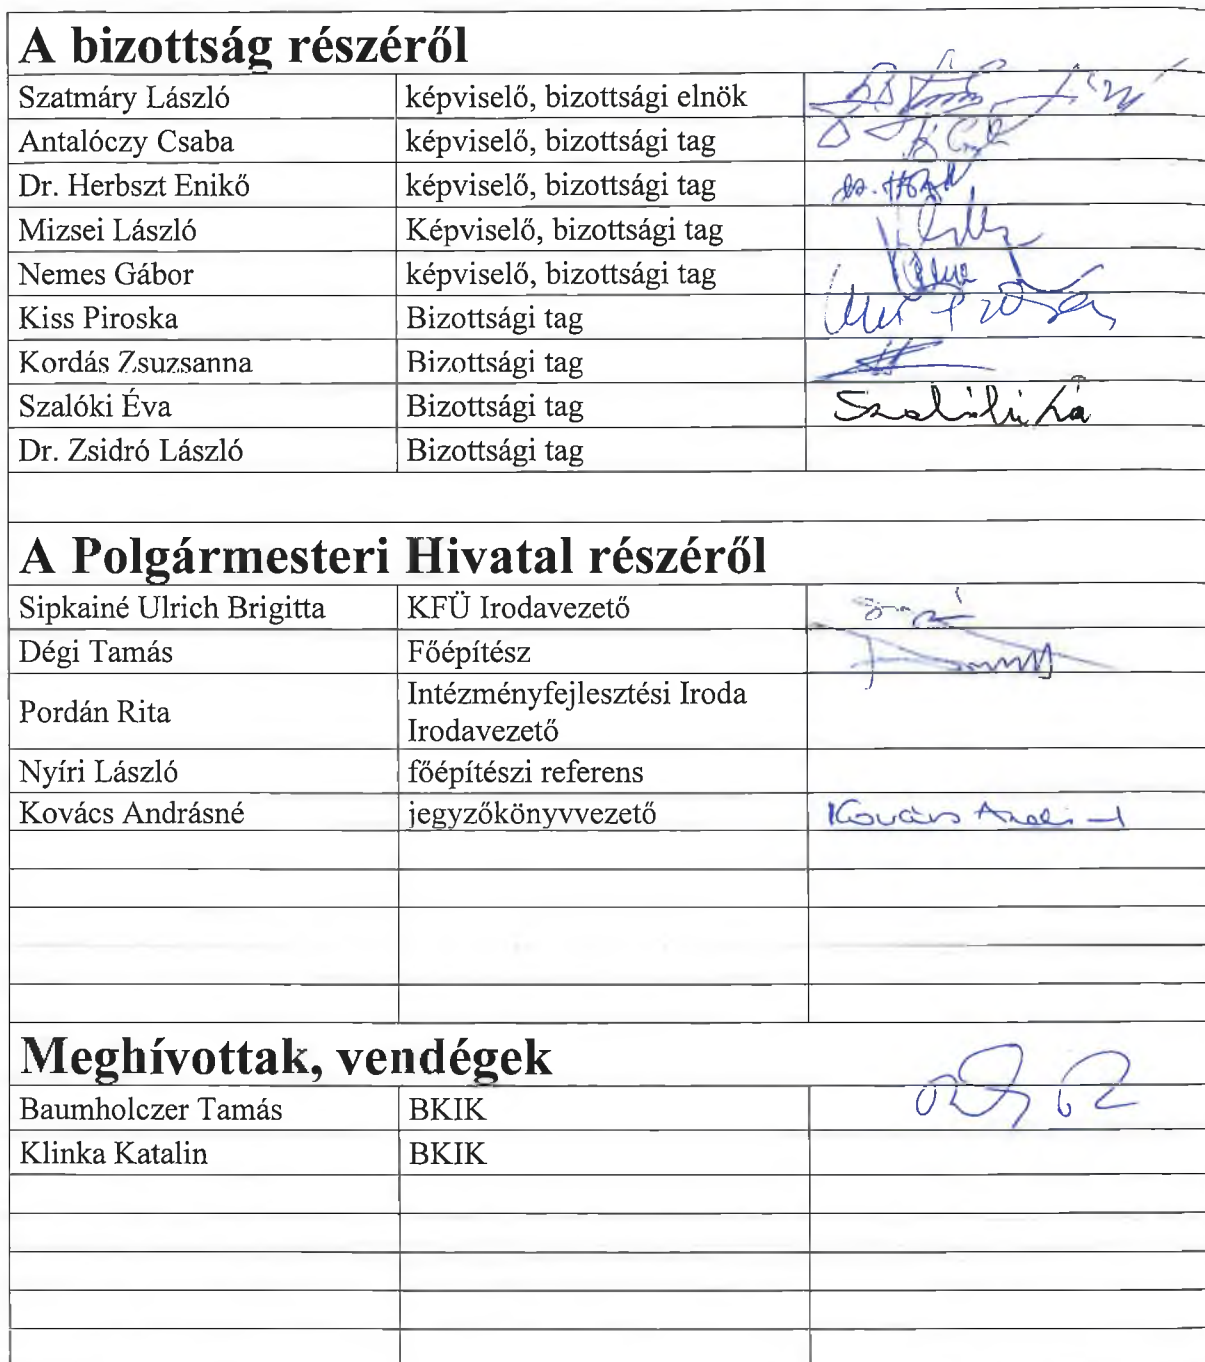 A bizottság részéről
Szatmáry László képviselő, bizottsági elnök
Antalóczy Csaba képviselő, bizottsági tag
Dr. Herbszt Enikő képviselő, bizottsági tag
Mizsei László Képviselő, bizottsági tag
Nemes Gábor képviselő, bizottsági tag
Kiss Piroska Bizottsági tag
Kordás Zsuzsanna Bizottsági tag
Szalóki Éva Bizottsági tag
Dr. Zsidró László Bizottsági tag
A Polgármesteri Hivatal részéről
Sipkainé Ulrich Brigitta KFÜ Irodavezető
Dégi Tamás Főépítész
Pordán Rita Intézményfejlesztési Iroda
Irodavezető
Nyíri László főépítészi referens
Kovács Andrásné jegyzőkönyvvezető Kovács
Meghívottak, vendégek
Baumholczer Tamás BKIK
Klinka Katalin BKIK